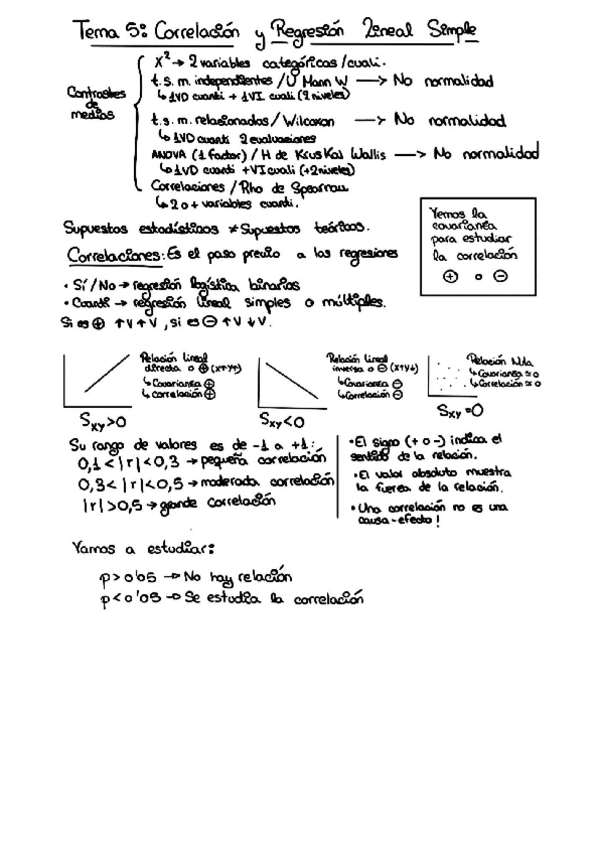 Tema 5: Correlación y Regresión Lineal Simple
Contrastes de medias
X² → 2 variables categóricas/cuali.
t.s.m. independientes / U Mann W → No normalidad
↳ 1VD cuanti + 1VI cuali (2 niveles)
t.s.m. relacionados / Wilcoxon → No normalidad
↳ 1VD cuanti 2 evaluaciones
ANOVA (1 factor) / H de Kruskal Wallis → No normalidad
↳ 1VD cuanti + VI cuali (+2 niveles)
Correlaciones / Rho de Spearman
↳ 2 o + variables cuanti.
Supuestos estadísticos ≠ Supuestos teóricos.
Correlaciones: Es el paso previo a las regresiones
· Sí/No → regresión logística binarias
· Cuanti → regresión lineal simples o múltiples.
Si es ⊕ ↑V ↑V, si es ⊖ ↑V ↓V.
Vemos la
covarianza
para estudiar
la correlación
⊕ o ⊖
Relación lineal
directa o ⊕ (x↑y↑)
↳ Covarianza ⊕
↳ Correlación ⊕
Sxy>0
Relación lineal
inversa o ⊖ (x↑y↓)
↳ Covarianza ⊖
↳ Correlación ⊖
Sxy<0
Relación Nula
↳ Covarianza = 0
↳ Correlación = 0
Sxy=0
Su rango de valores es de -1 a +1:
0,1 < |r| < 0,3 → pequeña correlación
0,3 < |r| < 0,5 → moderada correlación
|r| > 0,5 → grande correlación
· El signo (+ o -) indica el
sentido de la relación.
· El valor absoluto muestra
la fuerza de la relación.
· Una correlación no es una
causa-efecto!
Vamos a estudiar:
p > 0'05 → No hay relación
p < 0'05 → Se estudia la correlación